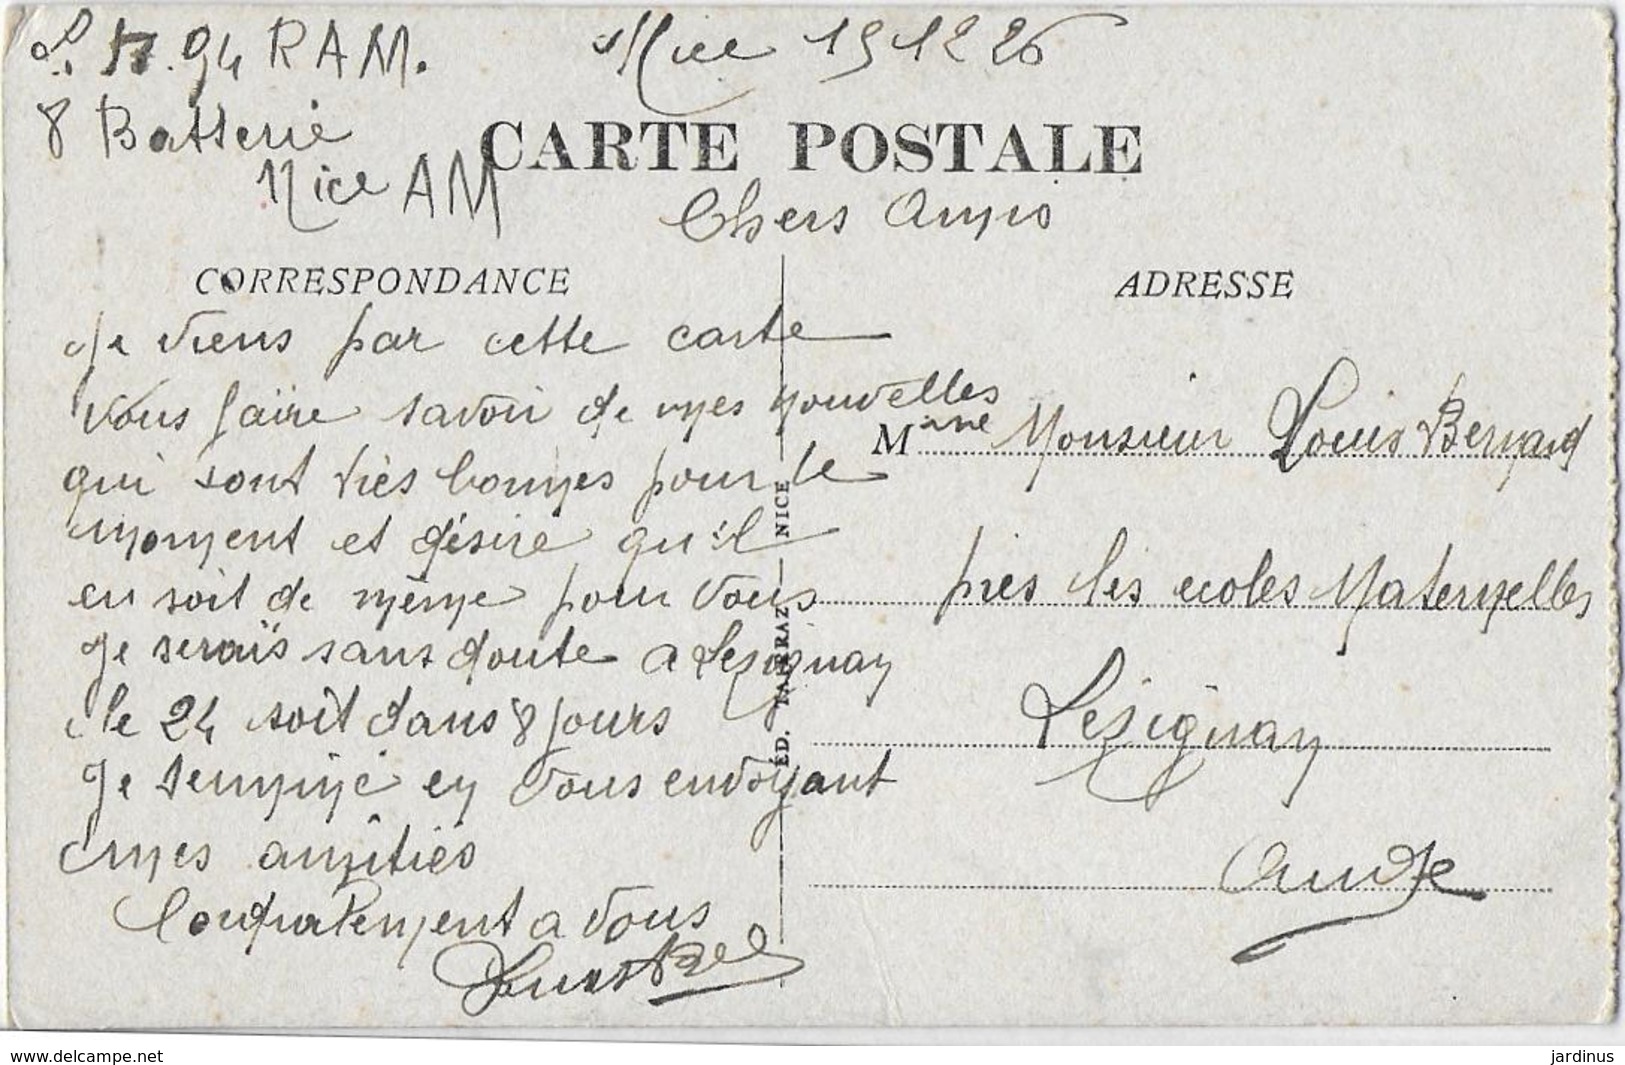 94 RAM.
8 Batterie
Nice AM
Nice 19 12 26
CARTE POSTALE
Chers Amis
CORRESPONDANCE
Je viens par cette carte
vous faire savoir de mes nouvelles
qui sont très bonnes pour le
moment et désire qu'il
en soit de même pour vous
Je serais sans doute a Lezignan
le 24 soit dans 8 jours
Je termine en vous envoyant
mes amitiés
Cordialement a vous
ADRESSE
Mme Monsieur Louis Bernard
près les ecoles Maternelles
Lézignan
Aude
ÉD. FARRAZ — NICE
www.delcampe.net
jardinus